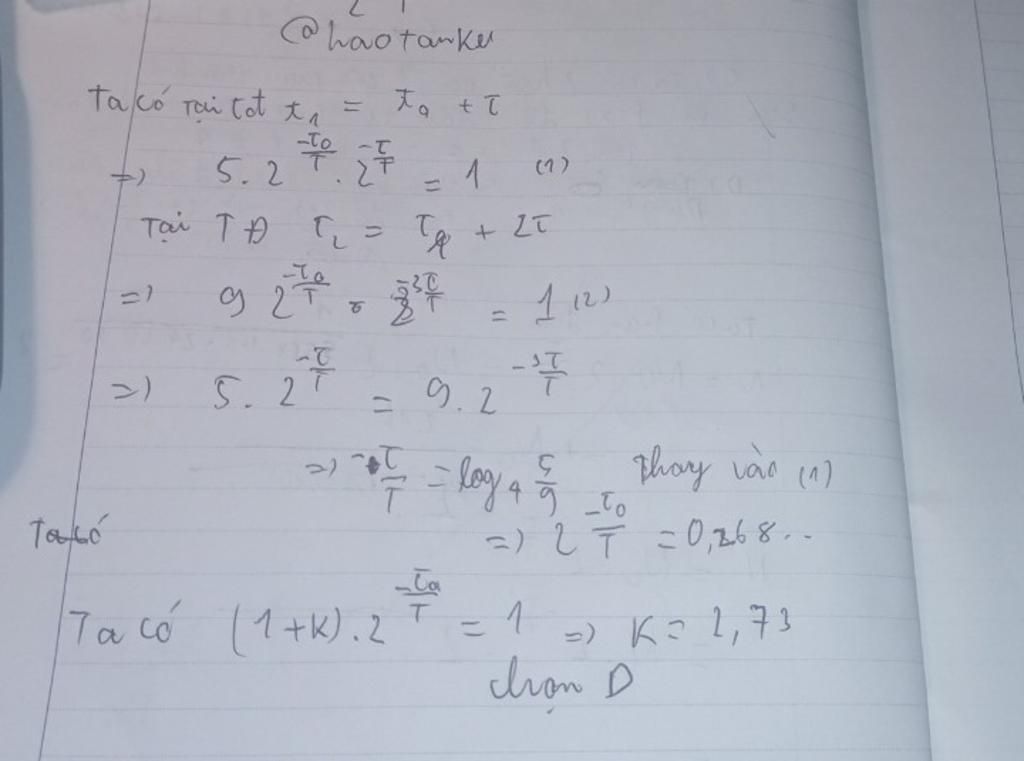 @haotanku
Ta có Tại tđ t₁ = t₀ + τ
=> 5. 2^(-τ₀/T) . 2^(-τ/T) = 1 (1)
Tại TĐ τ₂ = τ₀ + 2τ
=> 9 2^(-τ₀/T) . 2^(-3τ/T) = 1 (2)
=> 5. 2^(-τ/T) = 9. 2^(-3τ/T)
=> -τ/T = log₄ 5/9 thay vào (1)
Ta có => 2^(-τ₀/T) = 0,268...
Ta có (1+K).2^(-τ₀/T) = 1 => K = 2,73
chọn D